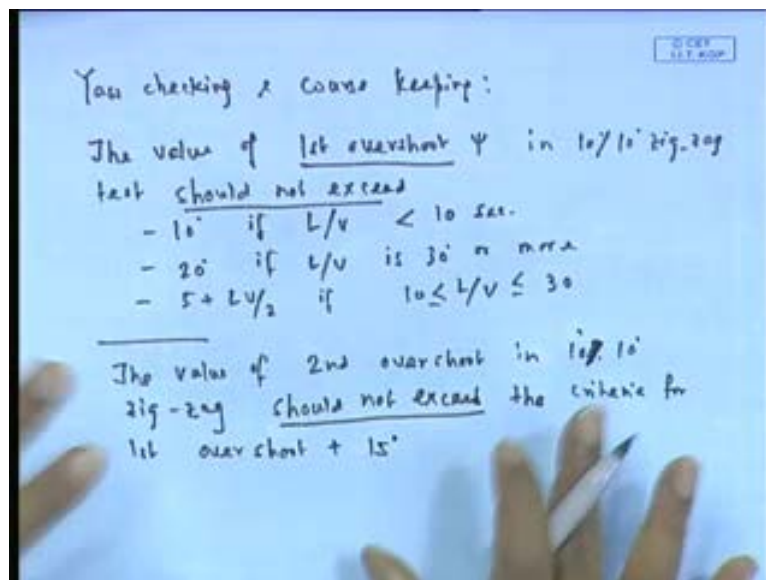 © CET
I.I.T. KGP
Yaw checking & course keeping:
The value of 1st overshoot ψ in 10°/10° zig-zag
test should not exceed
- 10° if L/V < 10 sec.
- 20° if L/V is 30° or more
- 5 + LV/2 if 10 ≤ L/V ≤ 30
The value of 2nd overshoot in 10°/10°
zig-zag should not exceed the criteria for
1st overshoot + 15°